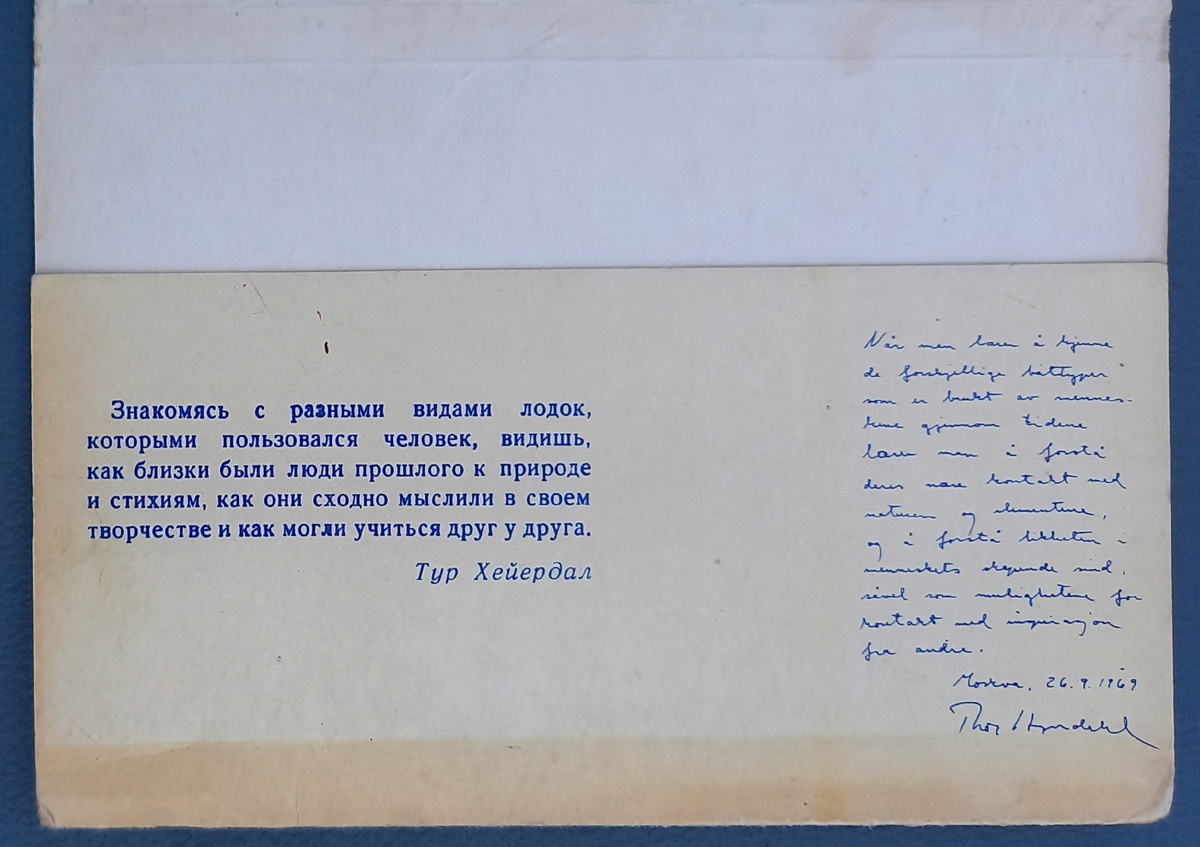 Знакомясь с разными видами лодок,
которыми пользовался человек, видишь,
как близки были люди прошлого к природе
и стихиям, как они сходно мыслили в своем
творчестве и как могли учиться друг у друга.
Тур Хейердал
Når man lærer å kjenne
de forskjellige båttyper
som er brukt av mennes-
kene gjennom tidene
lærer man å forstå
deres nære kontakt med
naturen og elementene,
og å forstå likheten i
menneskets skapende sind,
såvel som mulighetene for
kontakt med inspirasjon
fra andre.
Moskva, 26.9.1969
Thor Heyerdahl